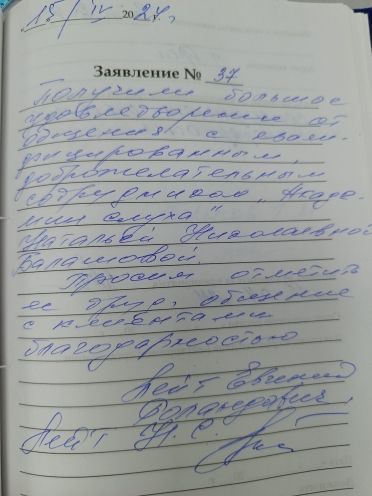 15/IV 2024 г.
Заявление № 37
Получили большое
удовлетворение от
общения с квали-
фицированным,
доброжелательным
сотрудником „Акаде-
мии слуха"
Натальей Николаевной
Балашовой.
Просим отметить
её труд, общение
с клиентами
благодарностью
Лейт Евгений
Лейт Н. С.